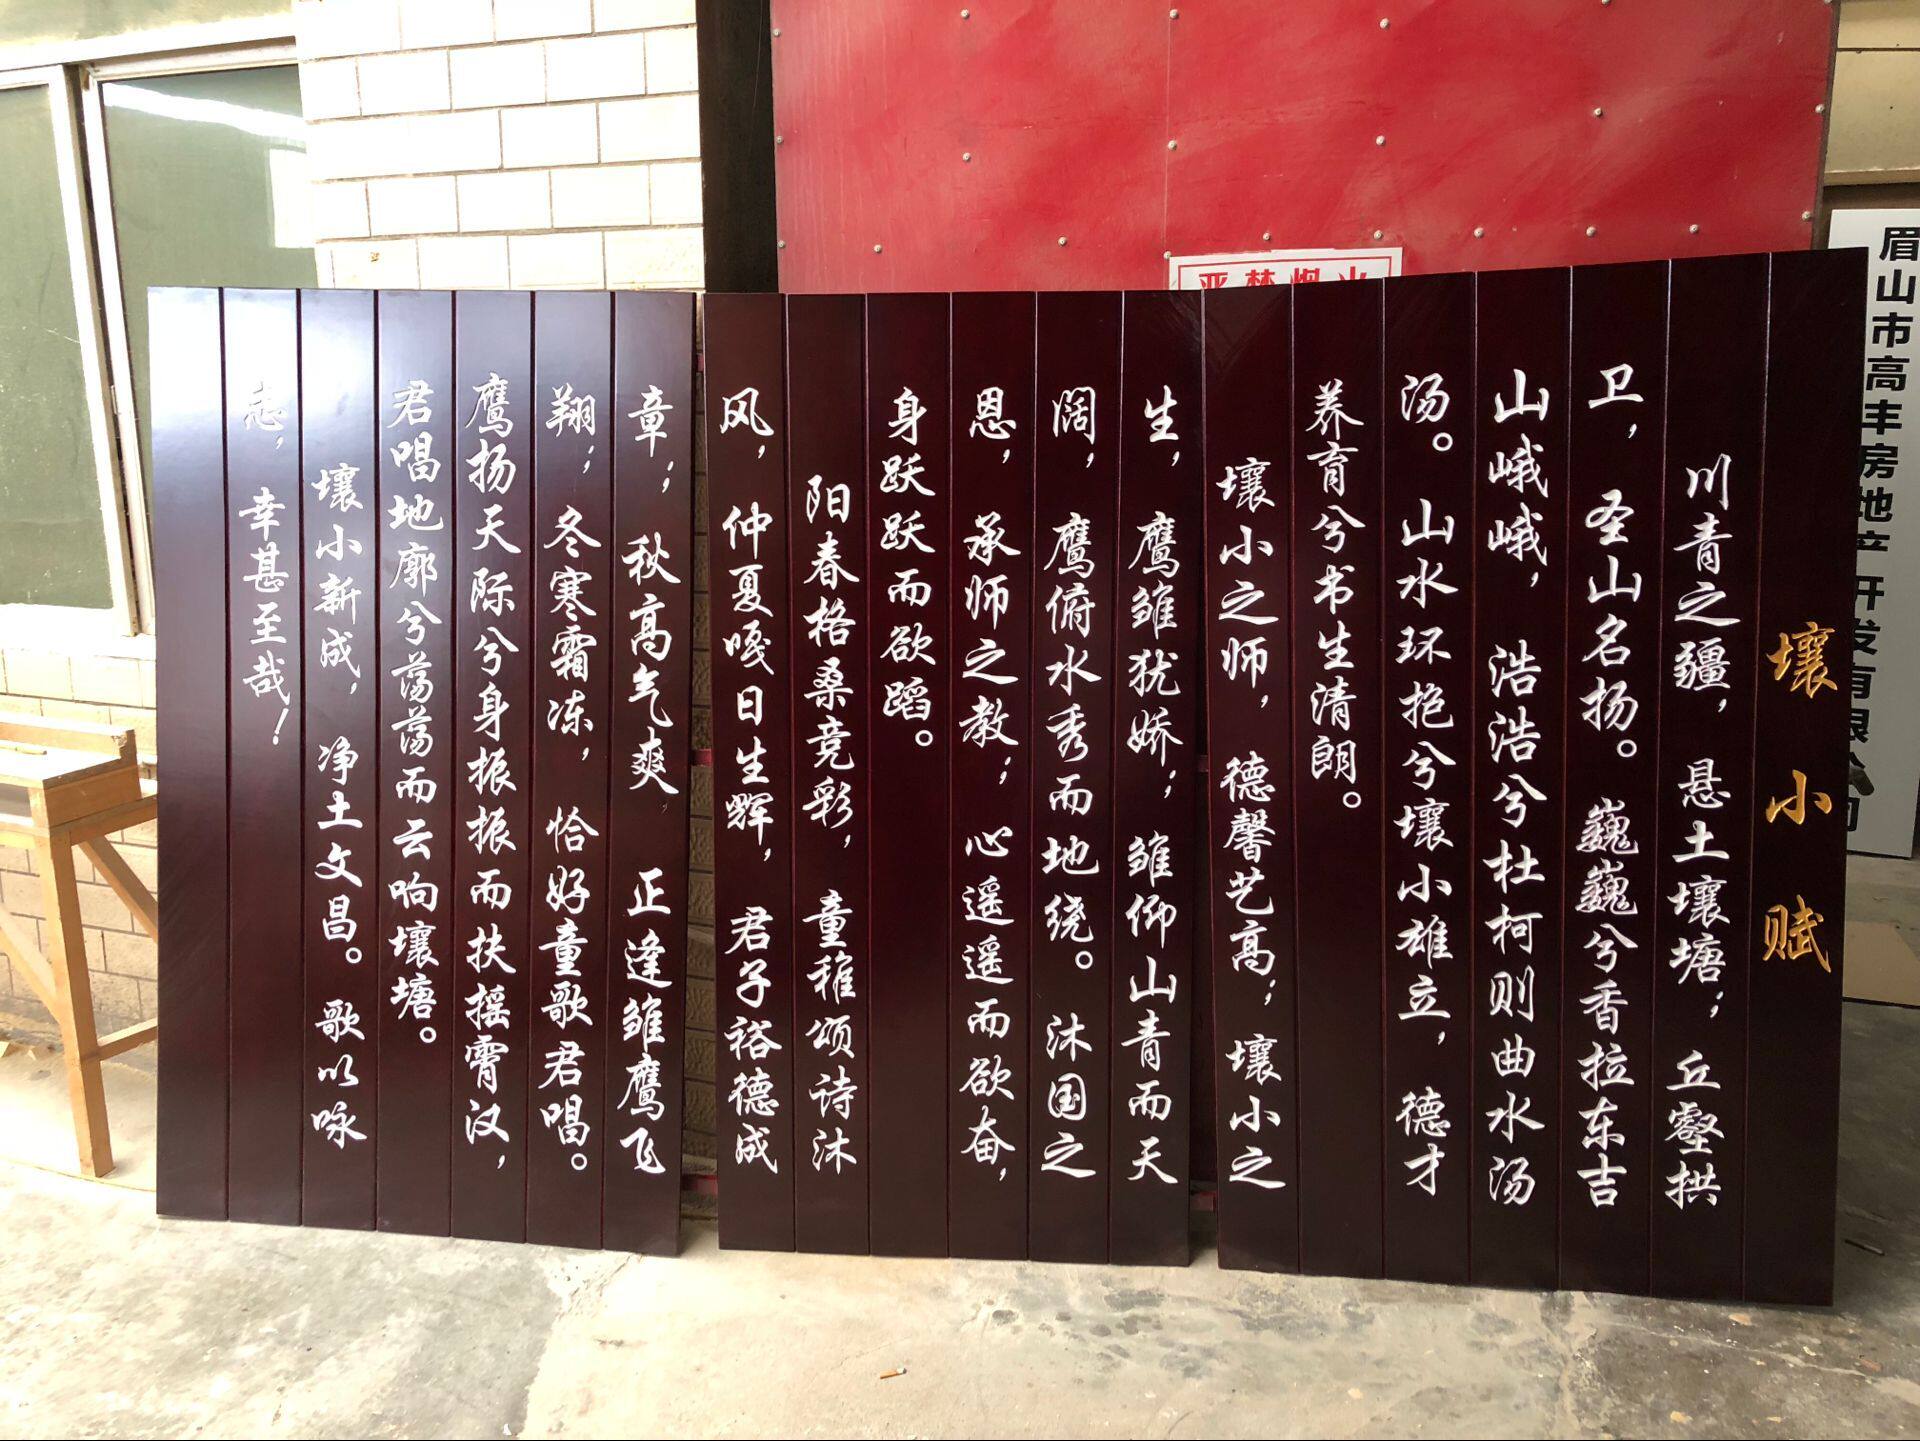 壤小赋
川青之疆，悬土壤塘；丘壑拱
卫，圣山名扬。巍巍兮香拉东吉
山峨峨，浩浩兮杜柯则曲水汤
汤。山水环抱兮壤小雄立，德才
养育兮书生清朗。
壤小之师，德馨艺高；壤小之
生，鹰雏犹娇；雏仰山青而天
阔，鹰俯水秀而地绕。沐国之
恩，承师之教；心遥遥而欲奋，
身跃跃而欲蹈。
阳春格桑竞彩，童稚颂诗沐
风，仲夏嘎日生辉，君子裕德成
章；秋高气爽，正逢雏鹰飞
翔；冬寒霜冻，恰好童歌君唱。
鹰扬天际兮身振振而扶摇霄汉，
君唱地廓兮荡荡而云响壤塘。
壤小新成，净土文昌。歌以咏
志，幸甚至哉！
眉山市高丰房地产开发有限公司